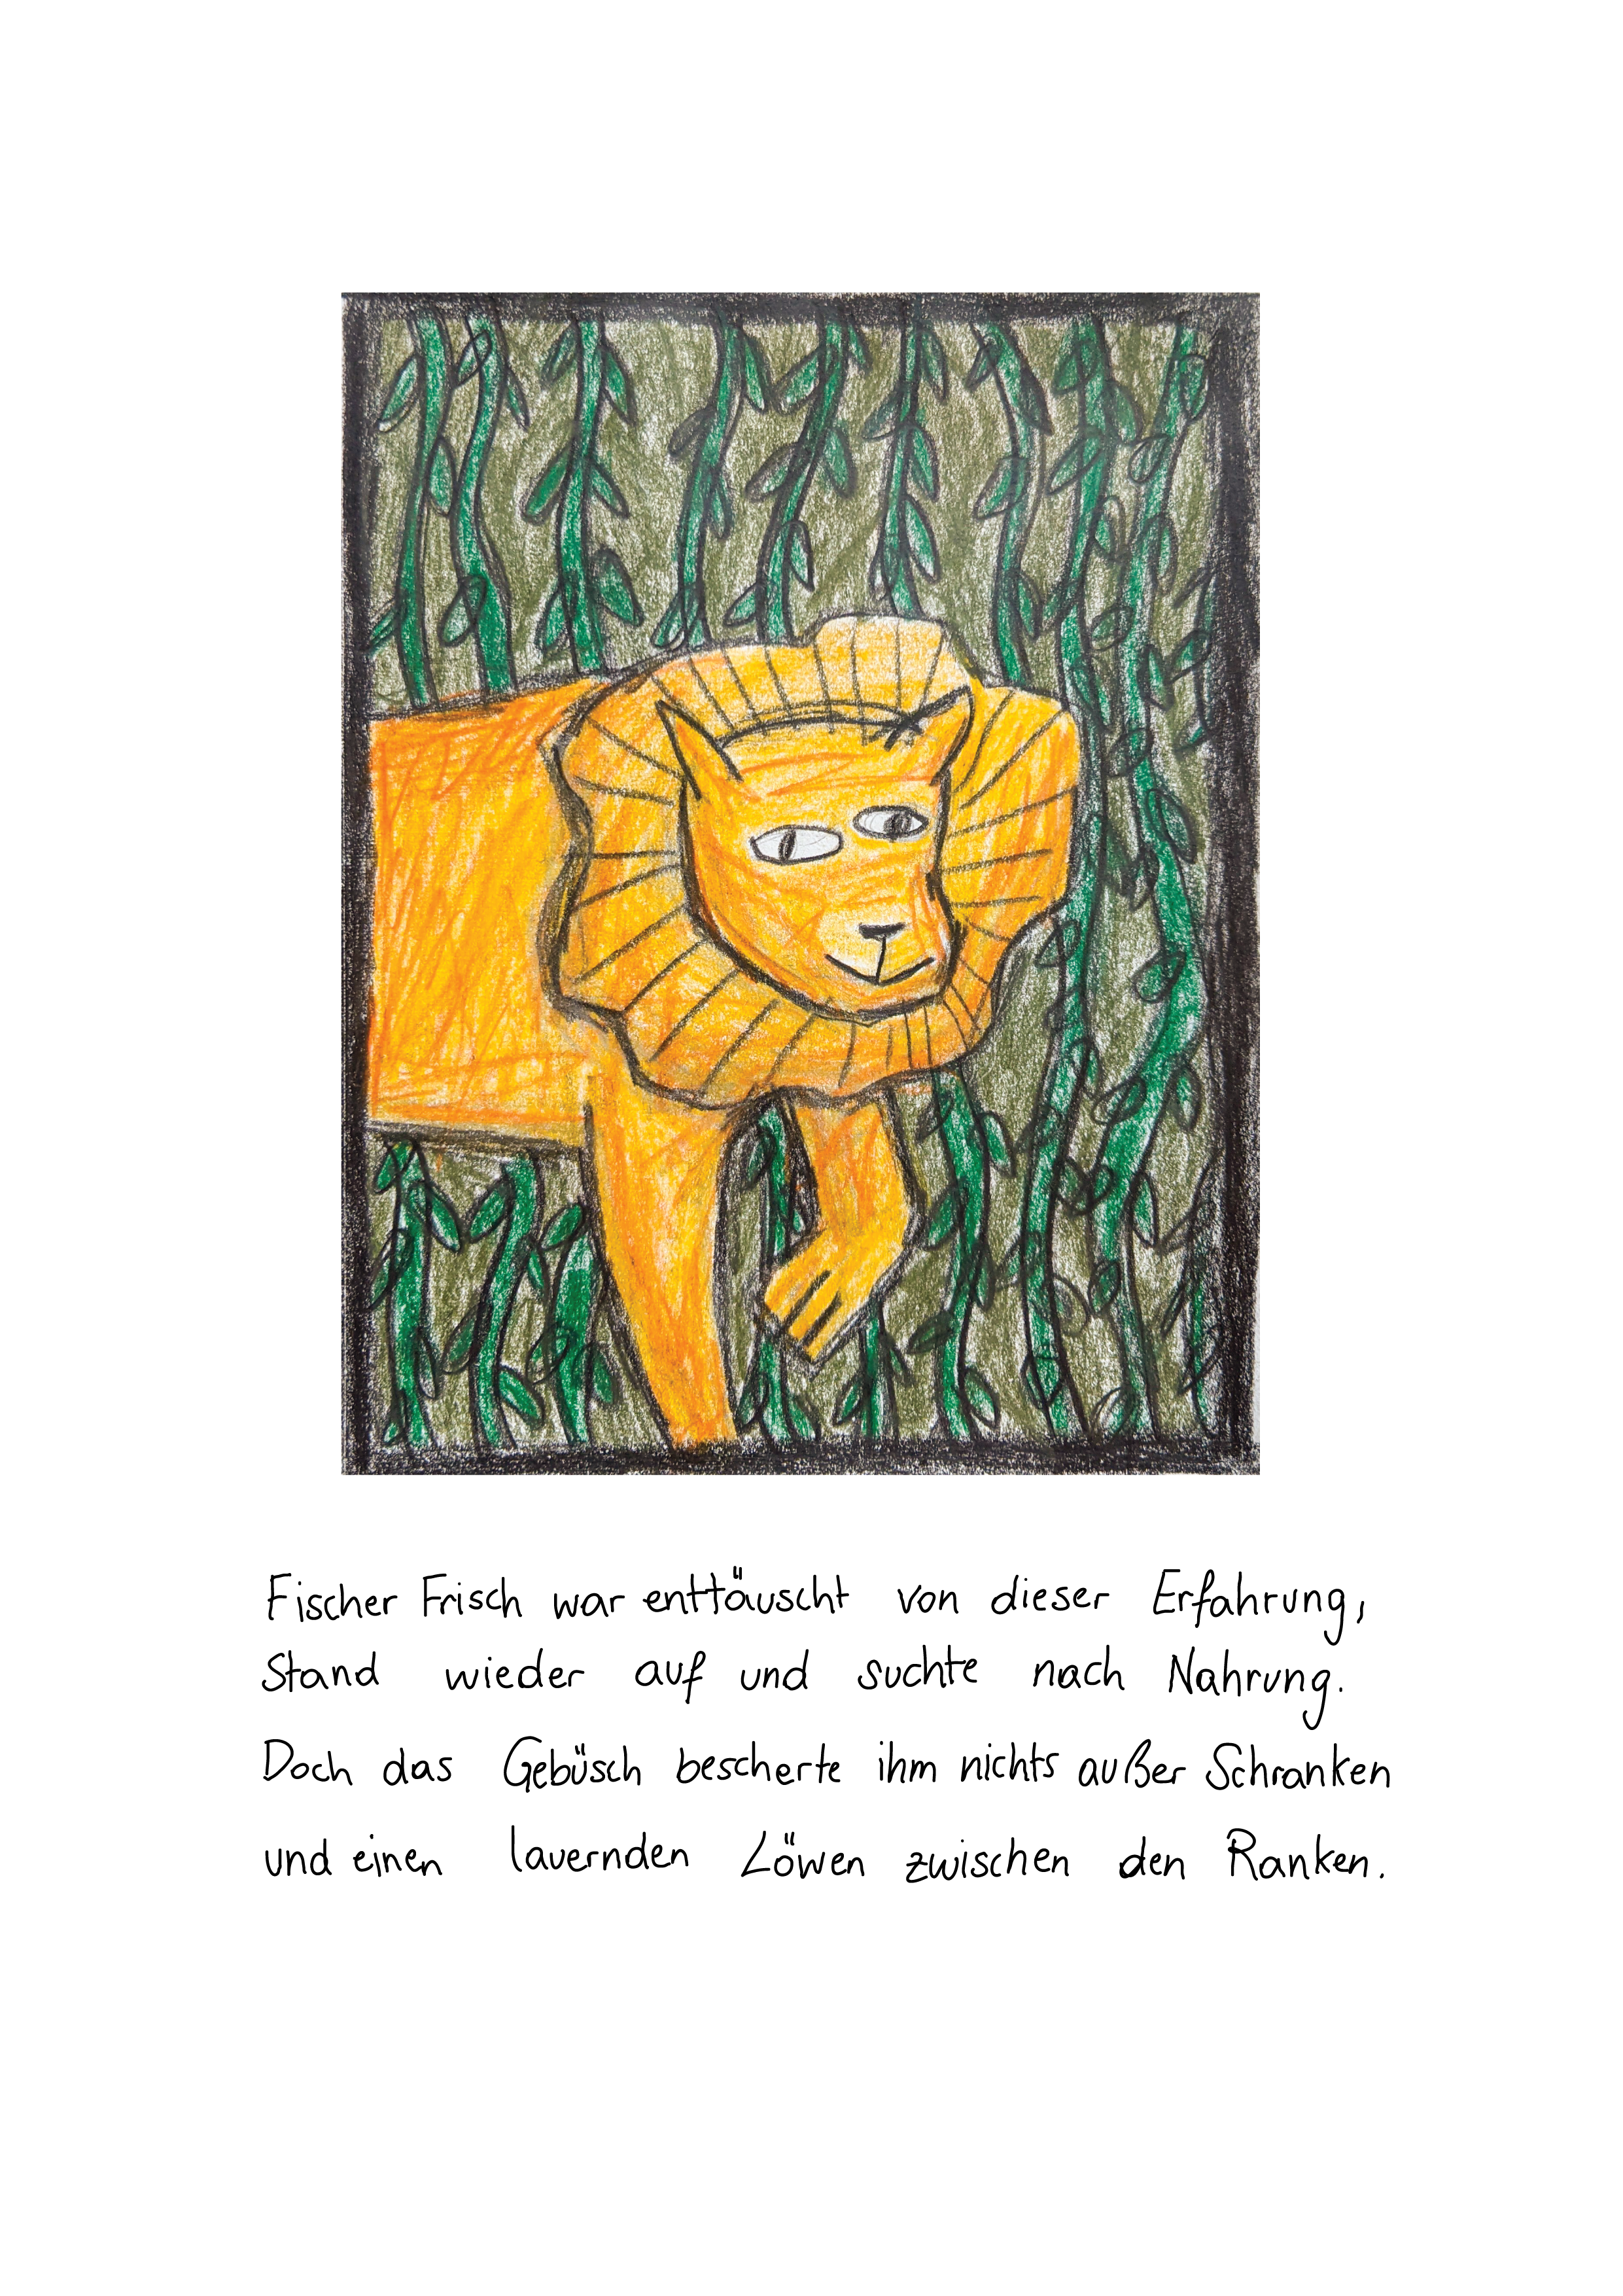 Fischer Frisch war enttäuscht von dieser Erfahrung,
Stand wieder auf und suchte nach Nahrung.
Doch das Gebüsch bescherte ihm nichts außer Schranken
und einen lauernden Löwen zwischen den Ranken.